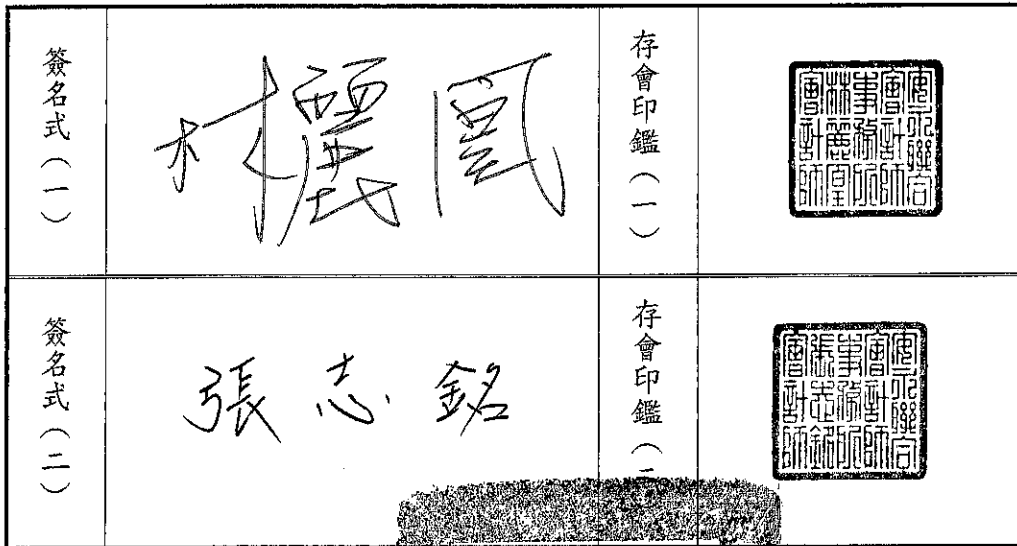 簽名式（一）
林麗凰
存會印鑑（一）
安永聯合
會計師
事務所
林麗凰
會計師
簽名式（二）
張志銘
存會印鑑（二
安永聯合
會計師
事務所
張志銘
會計師